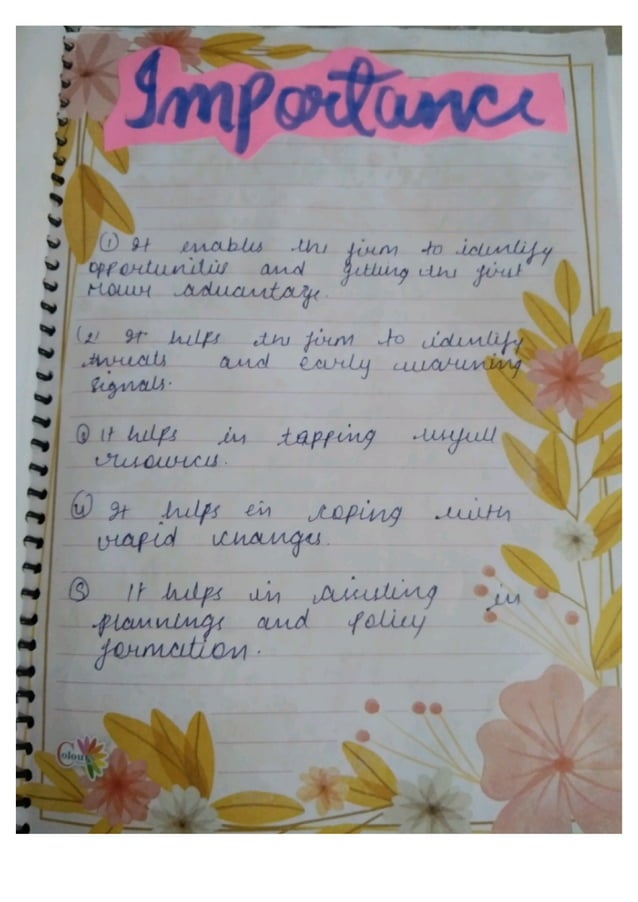 Importance
① It enables the firm to identify
opportunities and getting the first
mover advantage.
(2) It helps the firm to identify
threats and early warning
signals.
③ It helps in tapping usefull
resources.
④ It helps in coping with
rapid changes.
⑤ It helps in assisting in
plannings and policy
formation.
Colour